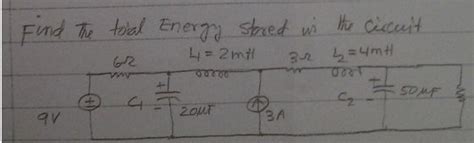 Find The total Energy stored in the Circuit
6Ω L1 = 2mH 3Ω L2 = 4mH
+ +
9V C1 - 20μF 3A C2 - 50μF